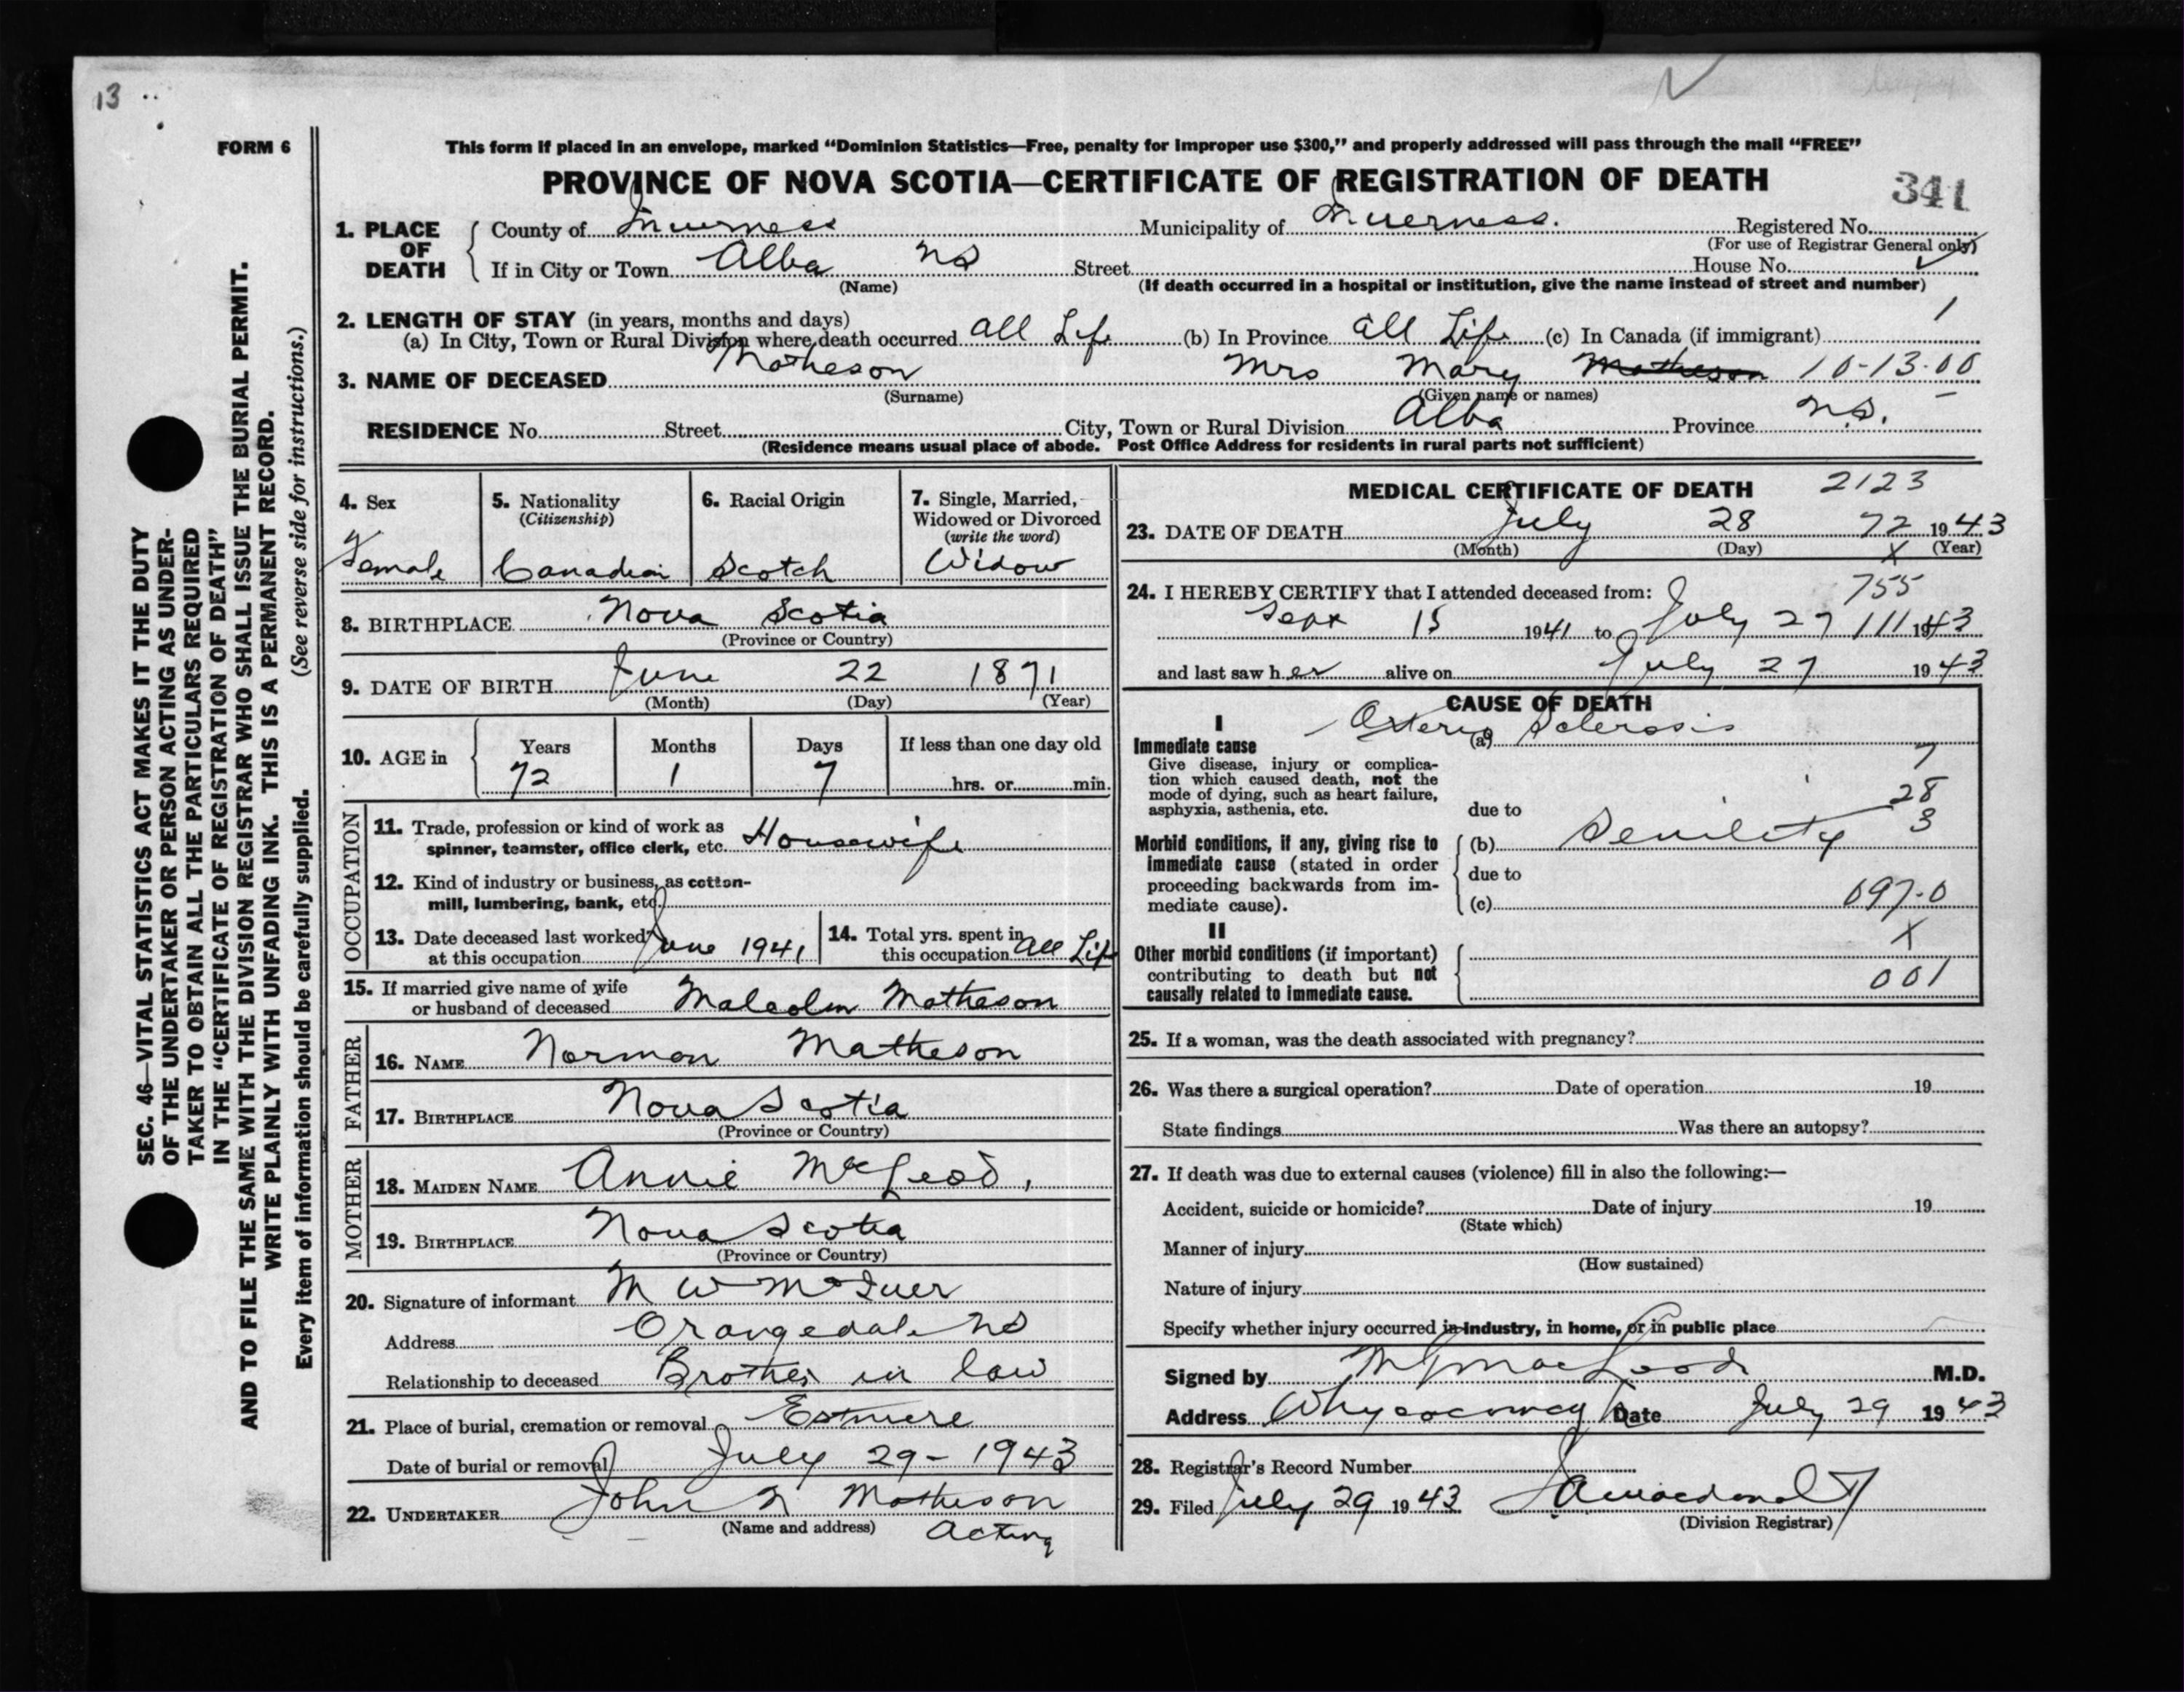 13
FORM 6
This form if placed in an envelope, marked “Dominion Statistics—Free, penalty for improper use $300,” and properly addressed will pass through the mail “FREE”
PROVINCE OF NOVA SCOTIA—CERTIFICATE OF REGISTRATION OF DEATH
341
1. PLACE OF DEATH { County of Inverness Municipality of Inverness. Registered No.
(For use of Registrar General only)
If in City or Town Alba NS Street House No.
(Name) (If death occurred in a hospital or institution, give the name instead of street and number)
2. LENGTH OF STAY (in years, months and days)
(a) In City, Town or Rural Division where death occurred all Life (b) In Province all Life (c) In Canada (if immigrant) 1
3. NAME OF DECEASED Matheson Mrs Mary Matheson 10-13-00
(Surname) (Given name or names)
RESIDENCE No. Street City, Town or Rural Division Alba Province N.S.
(Residence means usual place of abode. Post Office Address for residents in rural parts not sufficient)
SEC. 46—VITAL STATISTICS ACT MAKES IT THE DUTY
OF THE UNDERTAKER OR PERSON ACTING AS UNDER-
TAKER TO OBTAIN ALL THE PARTICULARS REQUIRED
IN THE “CERTIFICATE OF REGISTRATION OF DEATH”
AND TO FILE THE SAME WITH THE DIVISION REGISTRAR WHO SHALL ISSUE THE BURIAL PERMIT.
WRITE PLAINLY WITH UNFADING INK. THIS IS A PERMANENT RECORD.
Every item of information should be carefully supplied. (See reverse side for instructions.)
4. Sex
Female
5. Nationality
(Citizenship)
Canadian
6. Racial Origin
Scotch
7. Single, Married,
Widowed or Divorced
(write the word)
Widow
8. BIRTHPLACE Nova Scotia
(Province or Country)
9. DATE OF BIRTH June 22 1871
(Month) (Day) (Year)
10. AGE in { Years Months Days If less than one day old
72 1 7 hrs. or min.
OCCUPATION
11. Trade, profession or kind of work as
spinner, teamster, office clerk, etc. Housewife
12. Kind of industry or business, as cotton-
mill, lumbering, bank, etc.
13. Date deceased last worked
at this occupation June 1941
14. Total yrs. spent in
this occupation all Life
15. If married give name of wife
or husband of deceased Malcolm Matheson
FATHER
16. NAME Norman Matheson
17. BIRTHPLACE Nova Scotia
(Province or Country)
MOTHER
18. MAIDEN NAME Annie McLeod,
19. BIRTHPLACE Nova Scotia
(Province or Country)
20. Signature of informant M W McIver
Address Orangedale NS
Relationship to deceased Brother in law
21. Place of burial, cremation or removal Estmere
Date of burial or removal July 29 - 1943
22. UNDERTAKER John N Matheson
(Name and address) Acting
MEDICAL CERTIFICATE OF DEATH 2123
23. DATE OF DEATH July 28 72 1943
(Month) (Day) X (Year)
24. I HEREBY CERTIFY that I attended deceased from: 755
Sept 15 1941 to July 27 111 1943
and last saw her alive on July 27 1943
CAUSE OF DEATH
I
Immediate cause
Give disease, injury or complica-
tion which caused death, not the
mode of dying, such as heart failure,
asphyxia, asthenia, etc.
(a) Arterio Sclerosis
7
28
3
due to
Morbid conditions, if any, giving rise to
immediate cause (stated in order
proceeding backwards from im-
mediate cause).
(b) Senility
due to
(c) 097-0
X
II
Other morbid conditions (if important)
contributing to death but not
causally related to immediate cause.
001
25. If a woman, was the death associated with pregnancy?
26. Was there a surgical operation? Date of operation 19
State findings Was there an autopsy?
27. If death was due to external causes (violence) fill in also the following:—
Accident, suicide or homicide? Date of injury 19
(State which)
Manner of injury
(How sustained)
Nature of injury
Specify whether injury occurred in industry, in home, or in public place
Signed by MacLeod M.D.
Address Whycocomagh Date July 29 1943
28. Registrar's Record Number
29. Filed July 29 1943 Macdonald
(Division Registrar)